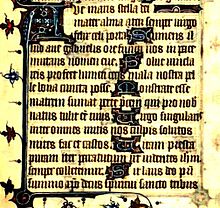 Ave maris stella di
mater alma atq semper virgo
felix celi porta Sumens il
lud ave gabrielis ore funda nos in pace
mutans nomen eve Solve vincla
reis profer lumen cecis mala nostra pel
le bona cuncta posce Monstra te esse
matrem sumat per te precem qui pro nob
natus tulit esse tuus Virgo singulari
inter omnes mitis nos culpis solutos
mites fac et castos Vitam presta
puram iter para tutum ut videntes ihm
semper colletemur Sit laus deo pa
summo xpo decus spiritui sancto tribus